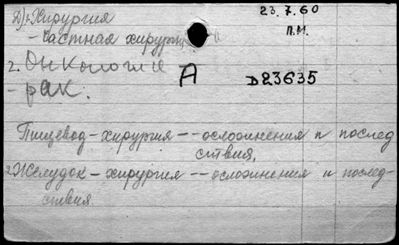 Д) 1. Хирургия 23.7.60
– частная хирургия П.М.
2. Онкология A D23635
– рак.
Пищевод – хирургия – – осложнения и послед
ствия.
2. Желудок – хирургия – – осложнения и послед-
ствия